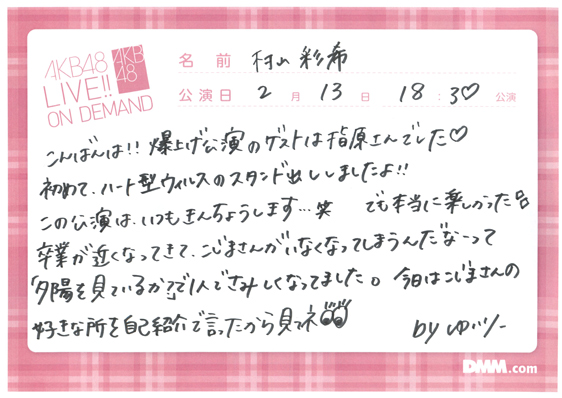 AKB48
LIVE!!
ON DEMAND
AKB
48
名前 村山彩希
公演日 2月13日 18:30♡公演
こんばんは!! 爆上げ公演のゲストは指原さんでした♡
初めて、ハート型ウィルスのスタンド出ししましたよ!!
この公演は、いつもきんちょうします…笑 でも本当に楽しかった
卒業が近くなってきて、こじまさんがいなくなってしまうんだなーって
「夕陽を見ているか?」で1人でさみしくなってました。今日はこじまさんの
好きな所を自己紹介で言ったから見てネ
by ゆいりー
DMM.com